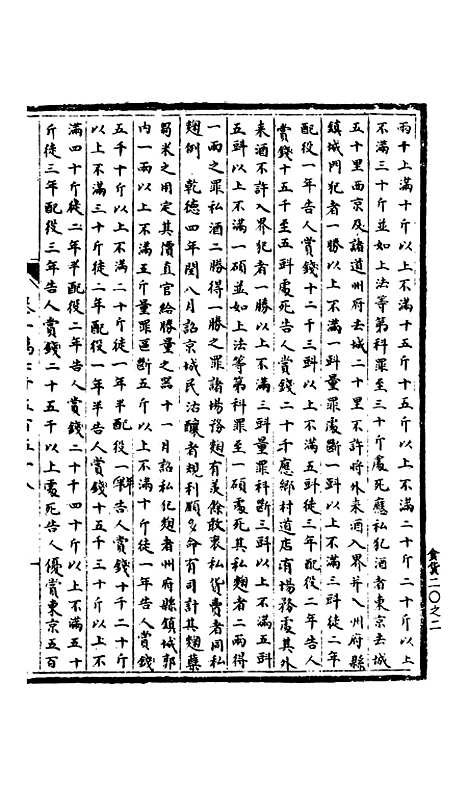 兩千上滿十斤以上不滿十五斤十五斤以上不滿二十斤二十斤以上
不滿三十斤並如上法等第科罪至三十斤處死應私犯酒者東京去城
五十里西京及諸道州府去城二十里不許將外來酒入界并入州府縣
鎮城門犯者一勝以上不滿一㪷量罪處斷一㪷以上不滿三㪷徒二年
配役一年告人賞錢十二千三㪷以上不滿五㪷徒三年配役二年告人
賞錢十五千至五㪷處死告人賞錢二十千應鄉村道店有場務處其外
來酒不許入界犯者一勝以上不滿三㪷量罪科斷三㪷以上不滿五㪷
五㪷以上不滿一碩並如上法等第科罪至一碩處死其私麴者二兩得
一兩之罪私酒二勝得一勝之罪諸場務麴有羨餘敢衷私貨費者同私
麴例 乾德四年閏八月詔京城民沽釀者規利頗多命有司計其麴蘖
蜀米之用定其價直官給勝量之器十一月詔私犯麴者州府縣鎮城郭
內一兩以上不滿五斤量罪區斷五斤以上不滿十斤徒一年告人賞錢
五千十斤以上不滿二十斤徒一年半配役一年告人賞錢十千二十斤
以上不滿三十斤徒二年配役一年半告人賞錢十五千三十斤以上不
滿四十斤徒二年半配役二年告人賞錢二十千四十斤以上不滿五十
斤徒三年配役三年告人賞錢二十五千以上處死告人優賞東京五百
食貨二〇之二